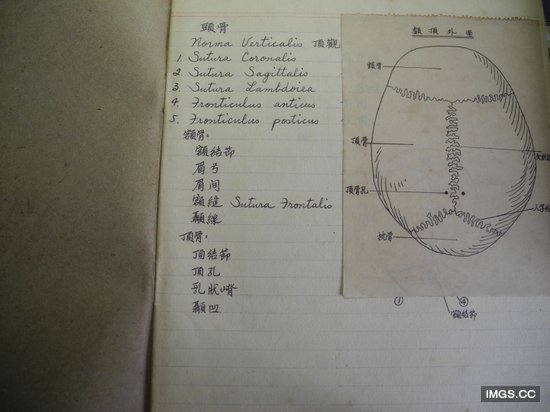 頭骨
Norma Verticalis 頂觀
1. Sutura Coronalis
2. Sutura Sagittalis
3. Sutura Lambdoiea
4. Fronticulus anticus
5. Fronticulus posticus
額骨:
額結節
眉弓
眉间
額縫 Sutura Frontalis
顳線
頂骨:
頂結節
頂孔
乳狀嵴
顳凹
顱頂外面
額骨
頂骨
頂骨孔
枕骨
① ④
額結節
IMGS.CC